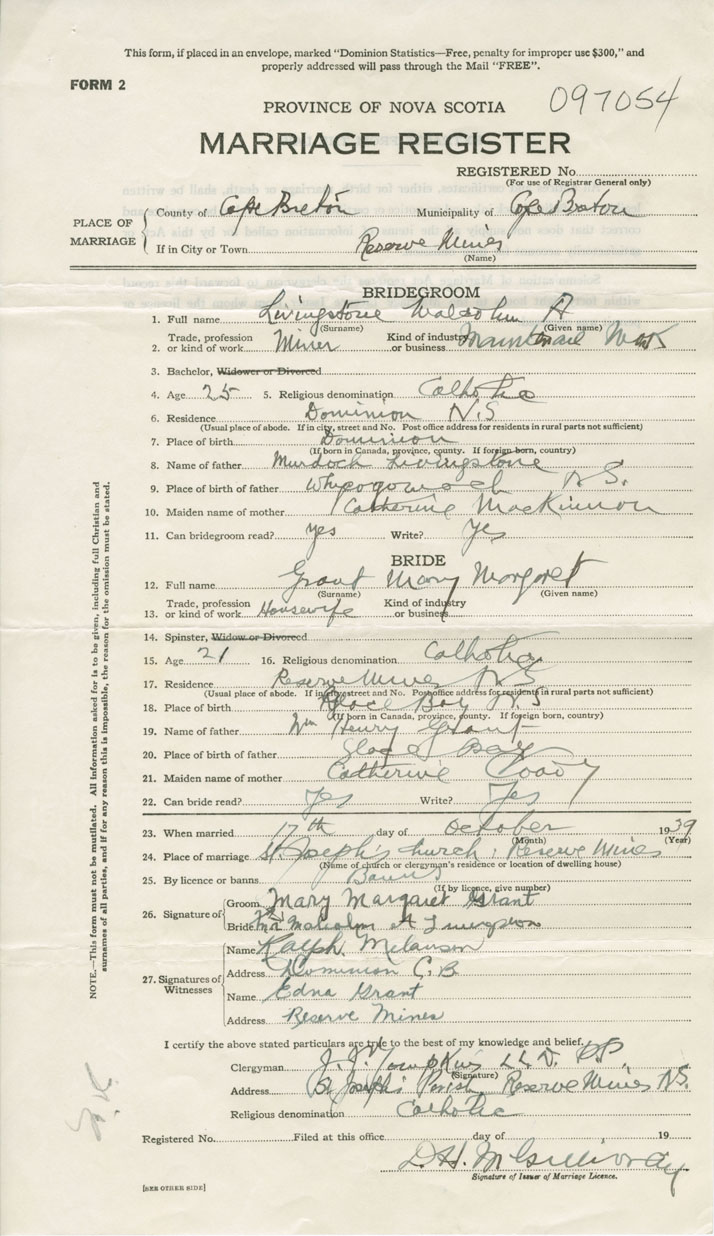 This form, if placed in an envelope, marked "Dominion Statistics—Free, penalty for improper use $300," and
properly addressed will pass through the Mail "FREE".
FORM 2
097054
PROVINCE OF NOVA SCOTIA
MARRIAGE REGISTER
REGISTERED No.
(For use of Registrar General only)
PLACE OF MARRIAGE
County of Cape Breton Municipality of Cape Breton
If in City or Town Reserve Mines
(Name)
BRIDEGROOM
1. Full name Livingstone A
(Surname) (Given name)
2. Trade, profession or kind of work Miner Kind of industry or business
3. Bachelor, Widower or Divorced
4. Age 25 5. Religious denomination Catholic
6. Residence Dominion N.S
(Usual place of abode. If in city, street and No. Post office address for residents in rural parts not sufficient)
7. Place of birth Dominion
(If born in Canada, province, county. If foreign born, country)
8. Name of father Murdoch Livingstone
9. Place of birth of father N.S.
10. Maiden name of mother Catherine MacKinnon
11. Can bridegroom read? yes Write? Yes
BRIDE
12. Full name Grant Mary Margaret
(Surname) (Given name)
13. Trade, profession or kind of work Housewife Kind of industry or business
14. Spinster, Widow or Divorced
15. Age 21 16. Religious denomination Catholic
17. Residence Reserve Mines N.S.
(Usual place of abode. If in city street and No. Post office address for residents in rural parts not sufficient)
18. Place of birth Glace Bay N.S
(If born in Canada, province, county. If foreign born, country)
19. Name of father Wm Henry Grant
20. Place of birth of father Glace Bay
21. Maiden name of mother Catherine Coady
22. Can bride read? Yes Write? Yes
23. When married 17th day of October 1939
(Month) (Year)
24. Place of marriage St Joseph's Church: Reserve Mines
(Name of church or clergyman's residence or location of dwelling house)
25. By licence or banns Banns
(If by licence, give number)
26. Signature of
Groom Mary Margaret Grant
Bride Malcolm A
27. Signatures of Witnesses
Name Ralph Melanson
Address Dominion C.B.
Name Edna Grant
Address Reserve Mines
I certify the above stated particulars are true to the best of my knowledge and belief.
Clergyman J. J. Tompkins LL.D. P.P.
(Signature)
Address St Joseph's Parish Reserve Mines N.S.
Religious denomination Catholic
Registered No. Filed at this office day of 19
D.H. McGillivray
Signature of Issuer of Marriage Licence.
[SEE OTHER SIDE]
NOTE.—This form must not be mutilated. All information asked for is to be given, including full Christian and
surnames of all parties, and if for any reason this is impossible, the reason for the omission must be stated.